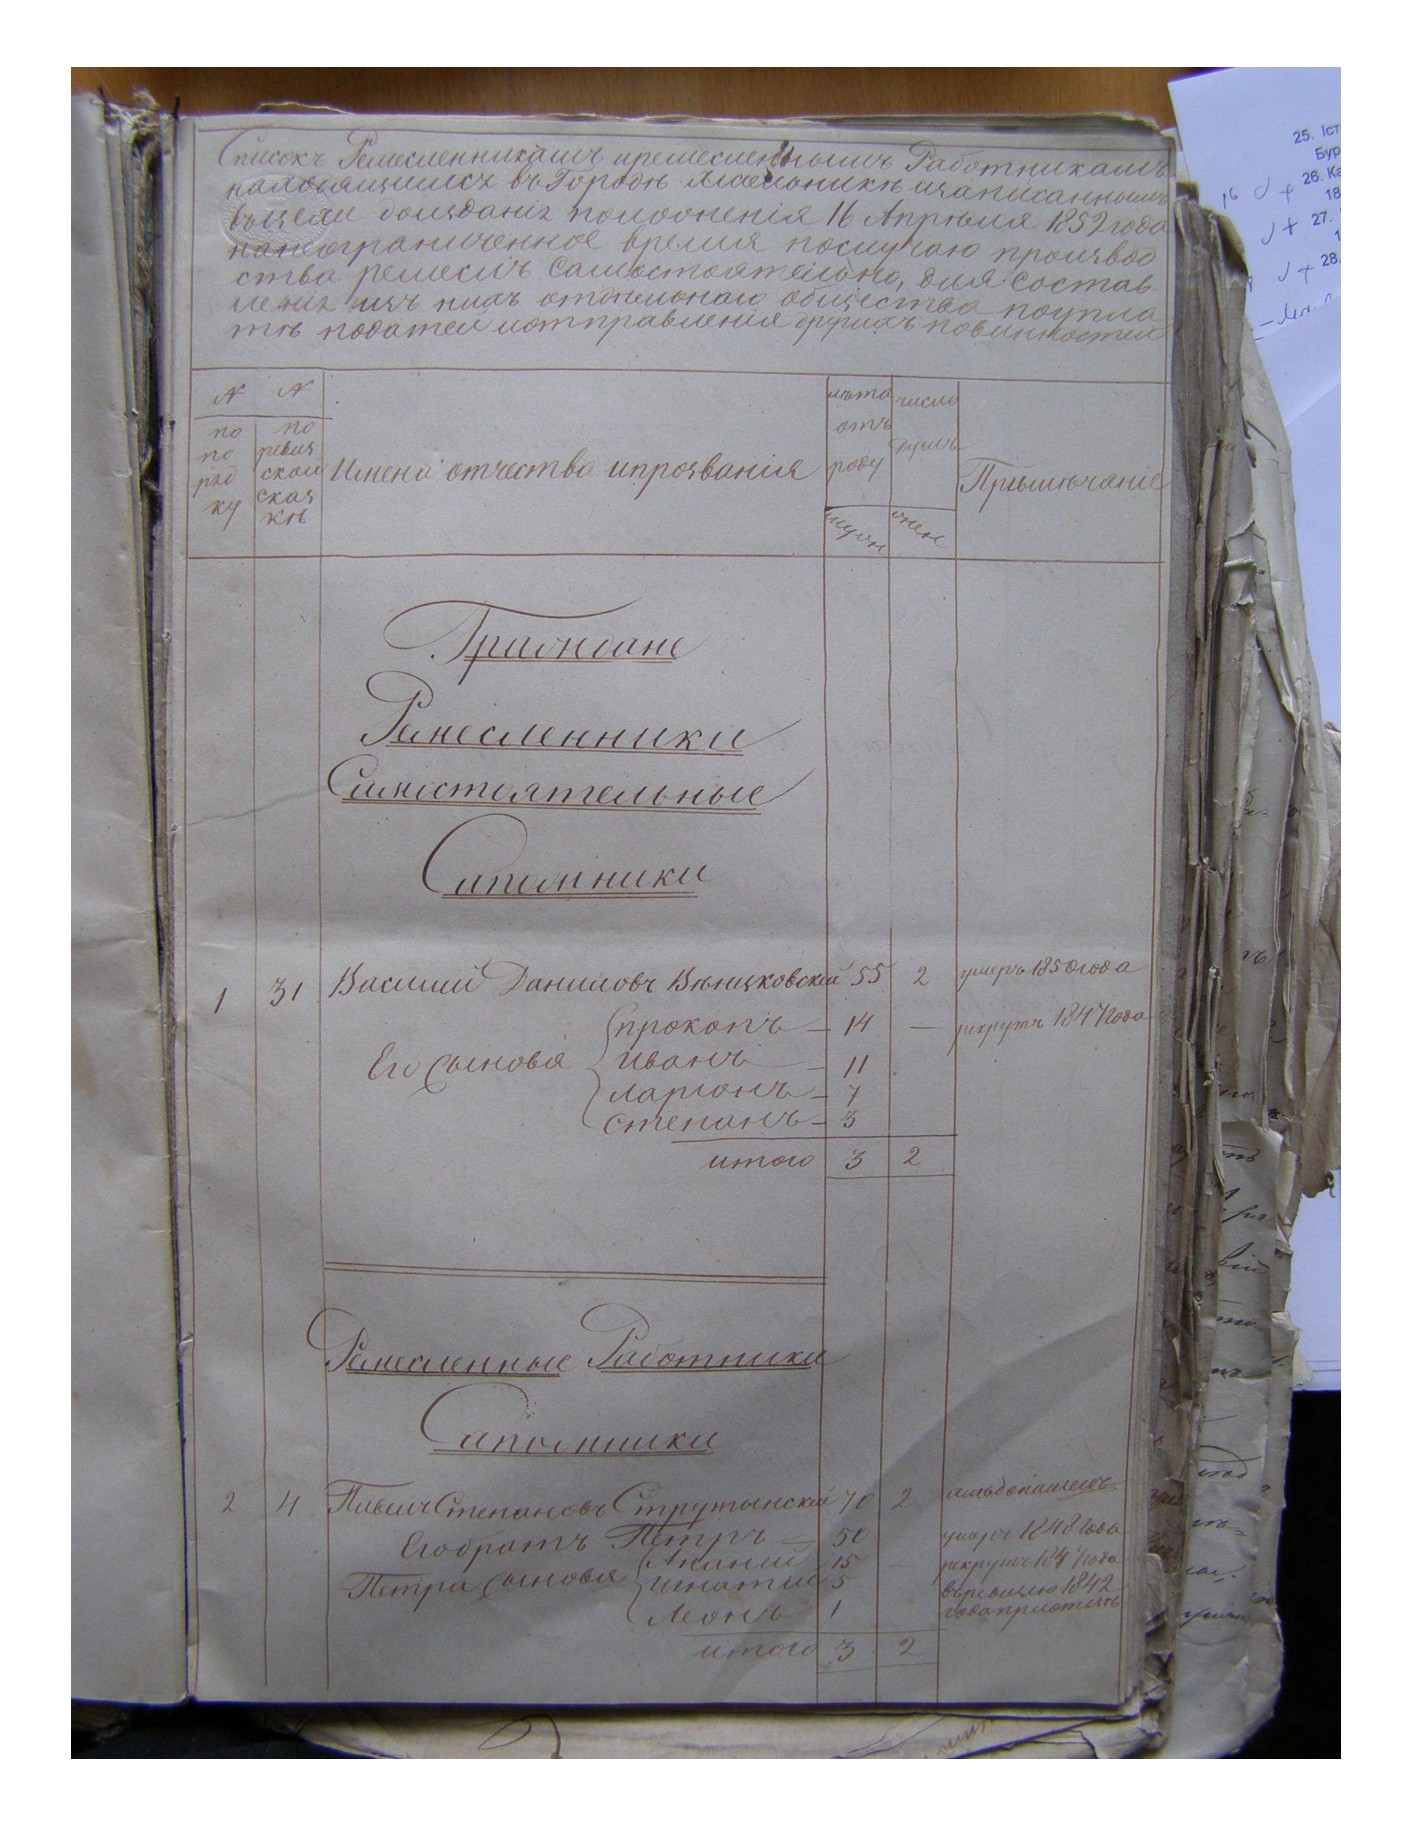 Списокъ Ремесленникамъ иремесленнымъ Работникамъ
находящимся въ Городѣ Хмельникѣ изаписаннымъ
въцехи доизданія положенія 16 Апрѣля 1852 года
нанеограниченное время послучаю производ
ства ремеслъ самостоятельно, для состав
ленія изъ нихъ отдѣльнаго общества поупла
тѣ податей иотправленія другихъ повинностей
№ №
по по ряд ку
по ревиз ской сказ кѣ
Имена отчества ипрозванія
лѣта отъ роду
число душъ
Примѣчаніе
Граждане
Ремесленники
Самостоятельные
Сапожники
1 31 Василий Даниловъ Вѣнцковский 55 2 умеръ 1850 года
прокопъ — 14 — рекрутъ 1847 года
Его сыновя иванъ — 11
ларионъ — 7
степанъ — 3
итого 3 2
Ремесленные Работники
Сапожники
2 4 Павелъ Степановъ Струтынский 70 2
Егобратъ Петръ — 50 — умеръ 1848 года
Ананий 15 — рекрутъ 1847 года
Петра сыновя игнатий 5 въревизию 1842
Леонъ 1
итого 3 2
25. Іст
Бур
26. Ка
18
27.
28.
16